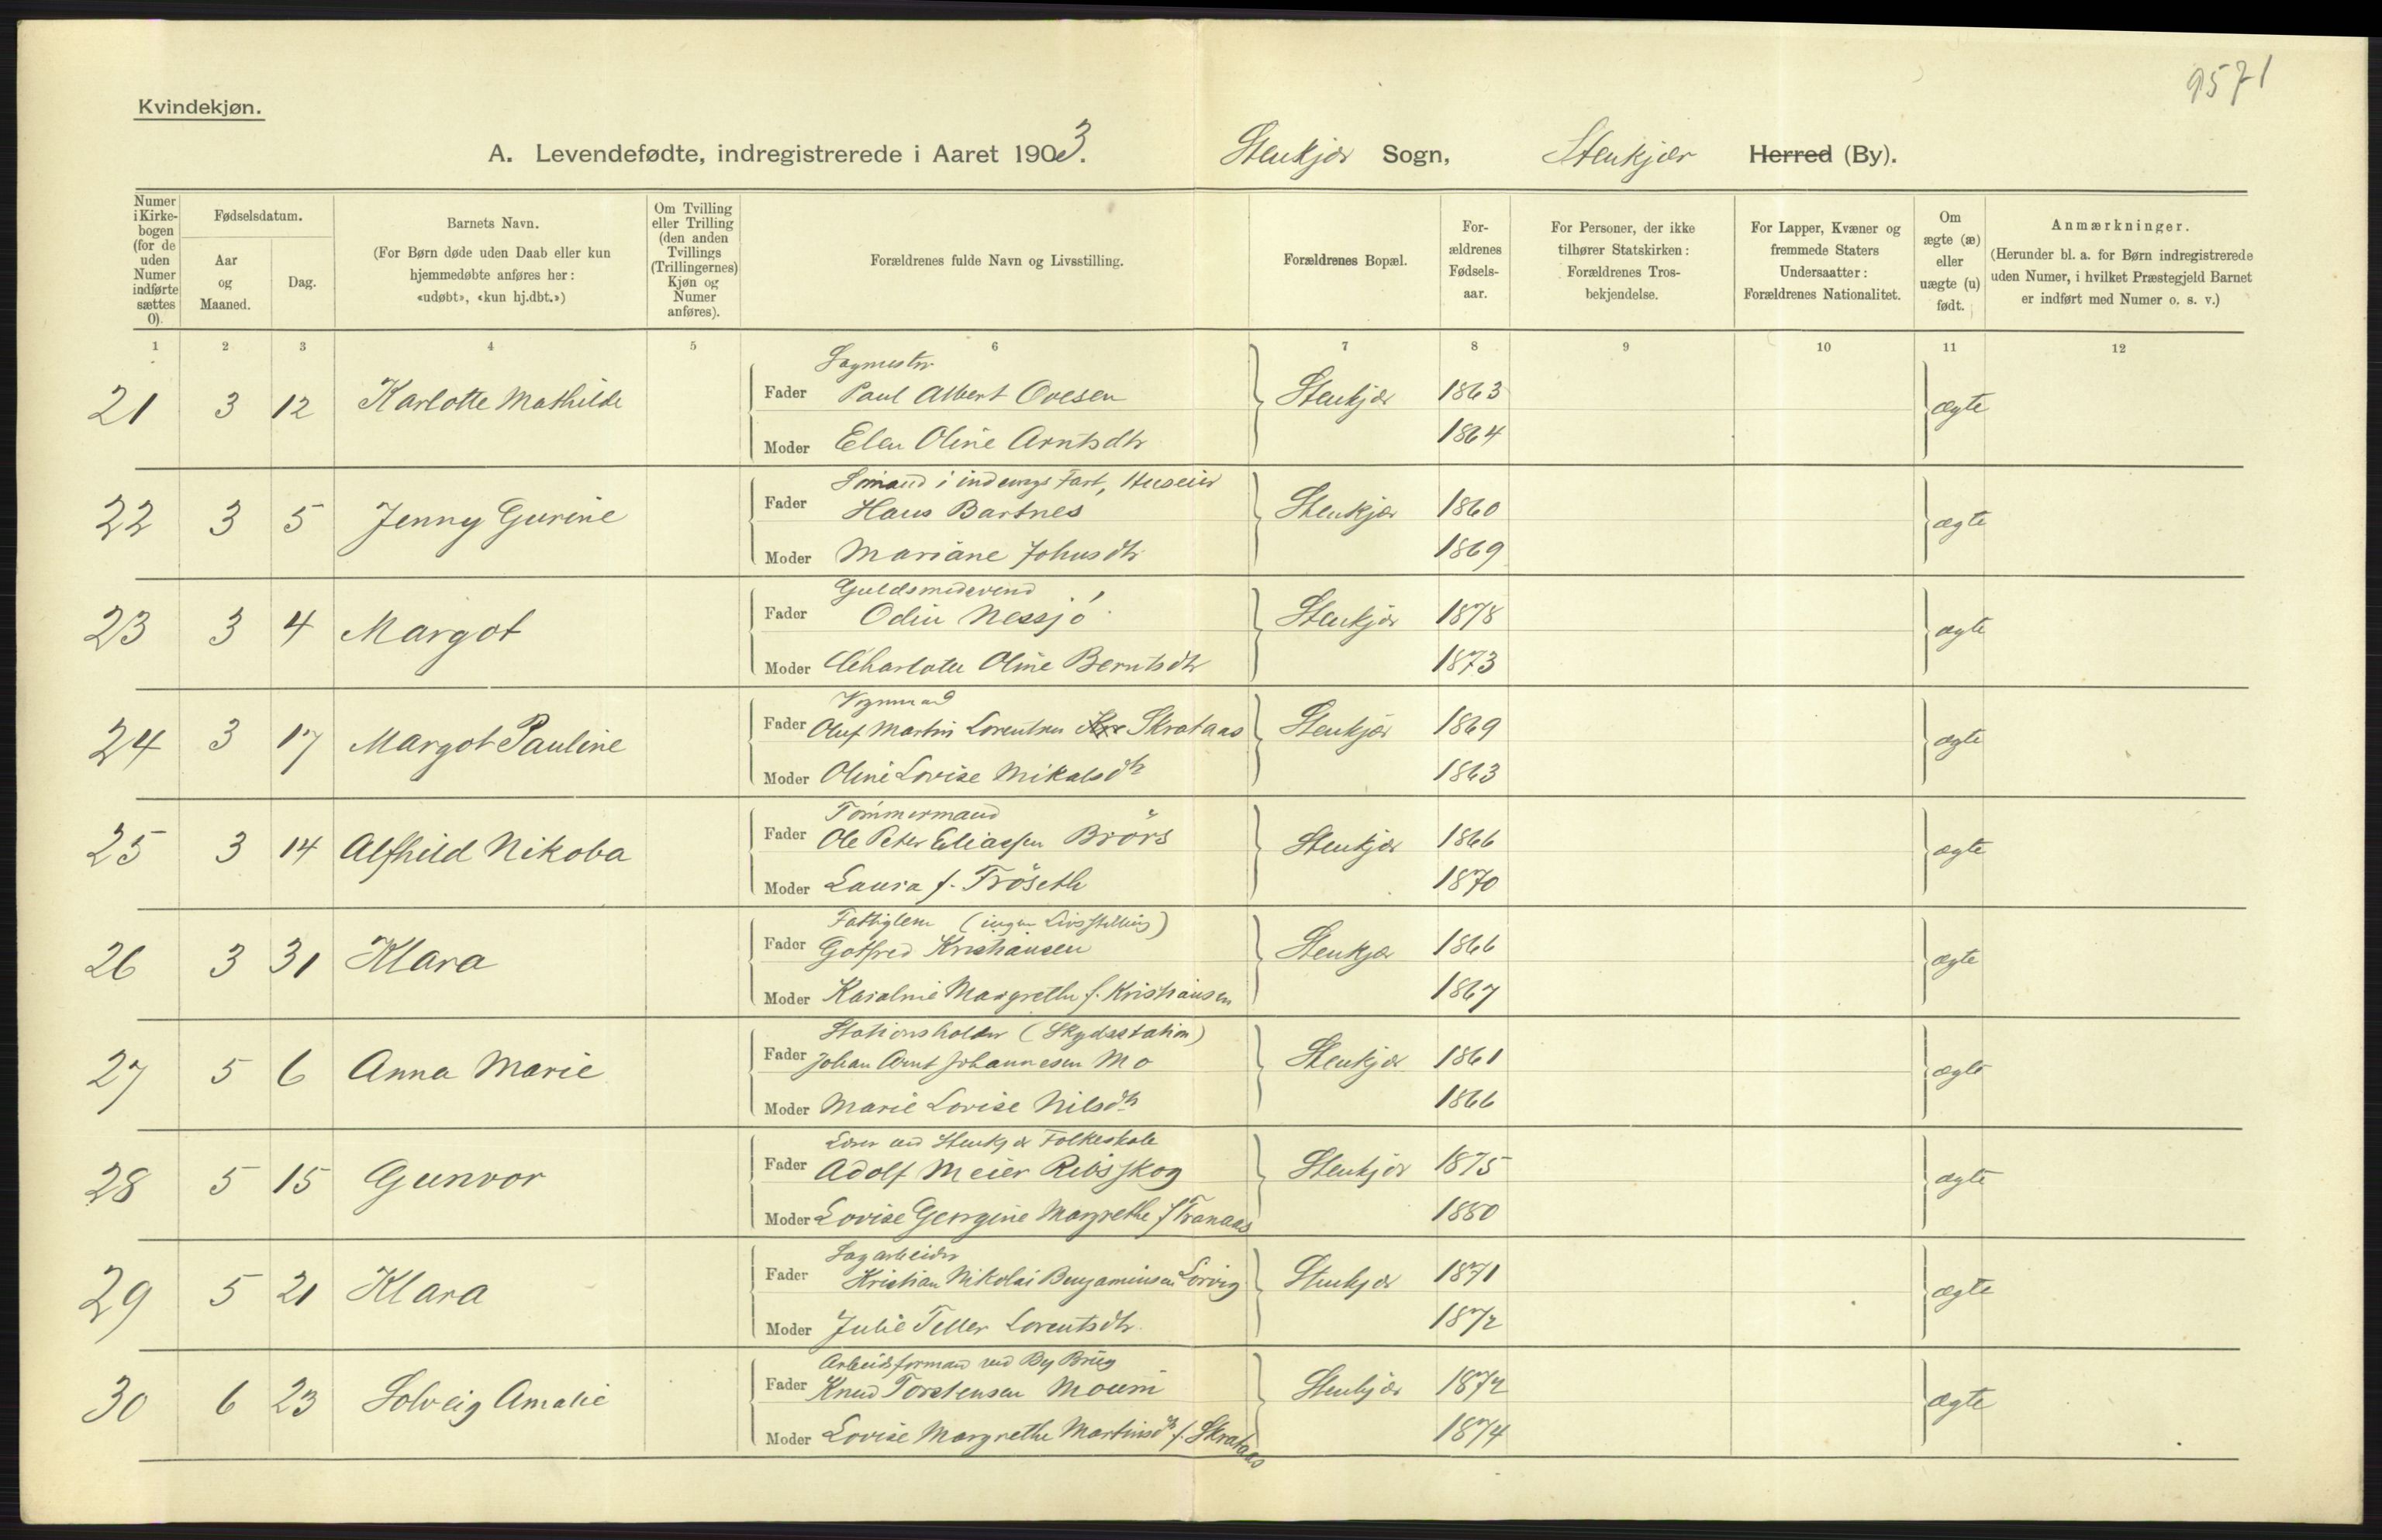 9571
Kvindekjøn.
A. Levendefødte, indregistrerede i Aaret 1903. Stenkjær Sogn, Stenkjær Herred (By).
Numer i Kirkebogen (for de uden Numer indførte sættes 0).
Fødselsdatum.
Aar og Maaned.
Dag.
Barnets Navn.
(For Børn døde uden Daab eller kun
hjemmedøbte anføres her:
«udøbt», «kun hj.dbt.»)
Om Tvilling
eller Trilling
(den anden
Tvillings
(Trillingernes)
Kjøn og
Numer
anføres).
Forældrenes fulde Navn og Livsstilling.
Forældrenes Bopæl.
For-
ældrenes
Fødsels-
aar.
For Personer, der ikke
tilhører Statskirken:
Forældrenes Tros-
bekjendelse.
For Lapper, Kvæner og
fremmede Staters
Undersaatter:
Forældrenes Nationalitet.
Om
ægte (æ)
eller
uægte (u)
født.
Anmærkninger.
(Herunder bl. a. for Børn indregistrerede
uden Numer, i hvilket Præstegjeld Barnet
er indført med Numer o. s. v.)
1 2 3 4 5 6 7 8 9 10 11 12
Sagmestr
21 3 12 Karlotte Mathilde Fader Paul Albert Ovesen Stenkjær 1863 ægte
Moder Elen Oline Arntsdtr 1864
Sømand i indenrigs Fart, Huseier
22 3 5 Jenny Gurine Fader Hans Bartnes Stenkjær 1860 ægte
Moder Mariane Johnsdtr 1869
Guldsmedsvend
23 3 4 Margot Fader Odin Nessjø Stenkjær 1878 ægte
Moder Charlotte Oline Berntsdtr 1873
Vognmand
24 3 17 Margot Pauline Fader Oluf Martin Lorentsen Skrataas Stenkjær 1869 ægte
Moder Oline Lovise Mikalsdtr 1863
Tømmermand
25 3 14 Alfhild Nikoba Fader Ole Peter Eliassen Brörs Stenkjær 1866 ægte
Moder Laura f. Tröseth 1870
Fattiglem (ingen Livsstilling)
26 3 31 Klara Fader Gotfred Kristiansen Stenkjær 1866 ægte
Moder Margrethe f. Kristiansen 1867
Stationsholder (Skydsstation)
27 5 6 Anna Marie Fader Johan Arnt Johannesen Mo Stenkjær 1861 ægte
Moder Marie Lovise Nilsdtr 1866
Lærer ved Stenkjær Folkeskole
28 5 15 Gunvor Fader Adolf Meier Ribsskog Stenkjær 1875 ægte
Moder Lovise Georgine Margrethe f Tranaas 1880
Sagarbeider
29 5 21 Klara Fader Kristian Nikolai Benjaminsen Lorvig Stenkjær 1871 ægte
Moder Julie Teller Lorentsdtr. 1872
Arbeidsformand ved By Brug
30 6 23 Solveig Amalie Fader Knud Torstensen Moum Stenkjær 1872 ægte
Moder Lovise Margrethe Martinsdtr f. Skrataas 1874